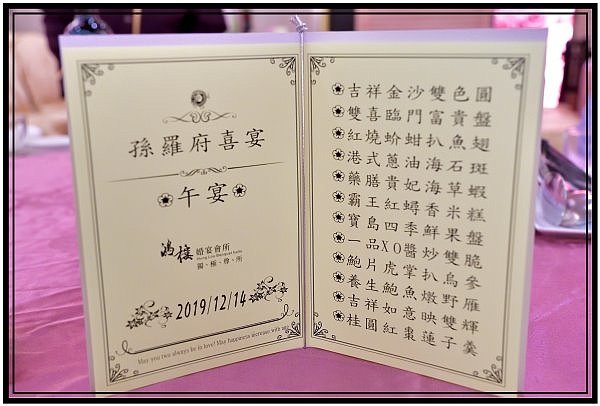 孫羅府喜宴
午宴
鴻樓 婚宴會所
獨、極、尊、所
2019/12/14
May you two always be in love! May happiness increase with age
吉祥金沙雙色圓
雙喜臨門富貴盤
紅燒蚧蚶扒魚翅
港式蔥油海石斑
藥膳貴妃海草蝦
霸王紅蟳香米糕
寶島四季鮮果盤
一品XO醬炒雙脆
鮑片虎掌扒烏參
養生鮑魚燉野雁
吉祥如意映雙輝
桂圓紅棗蓮子羹